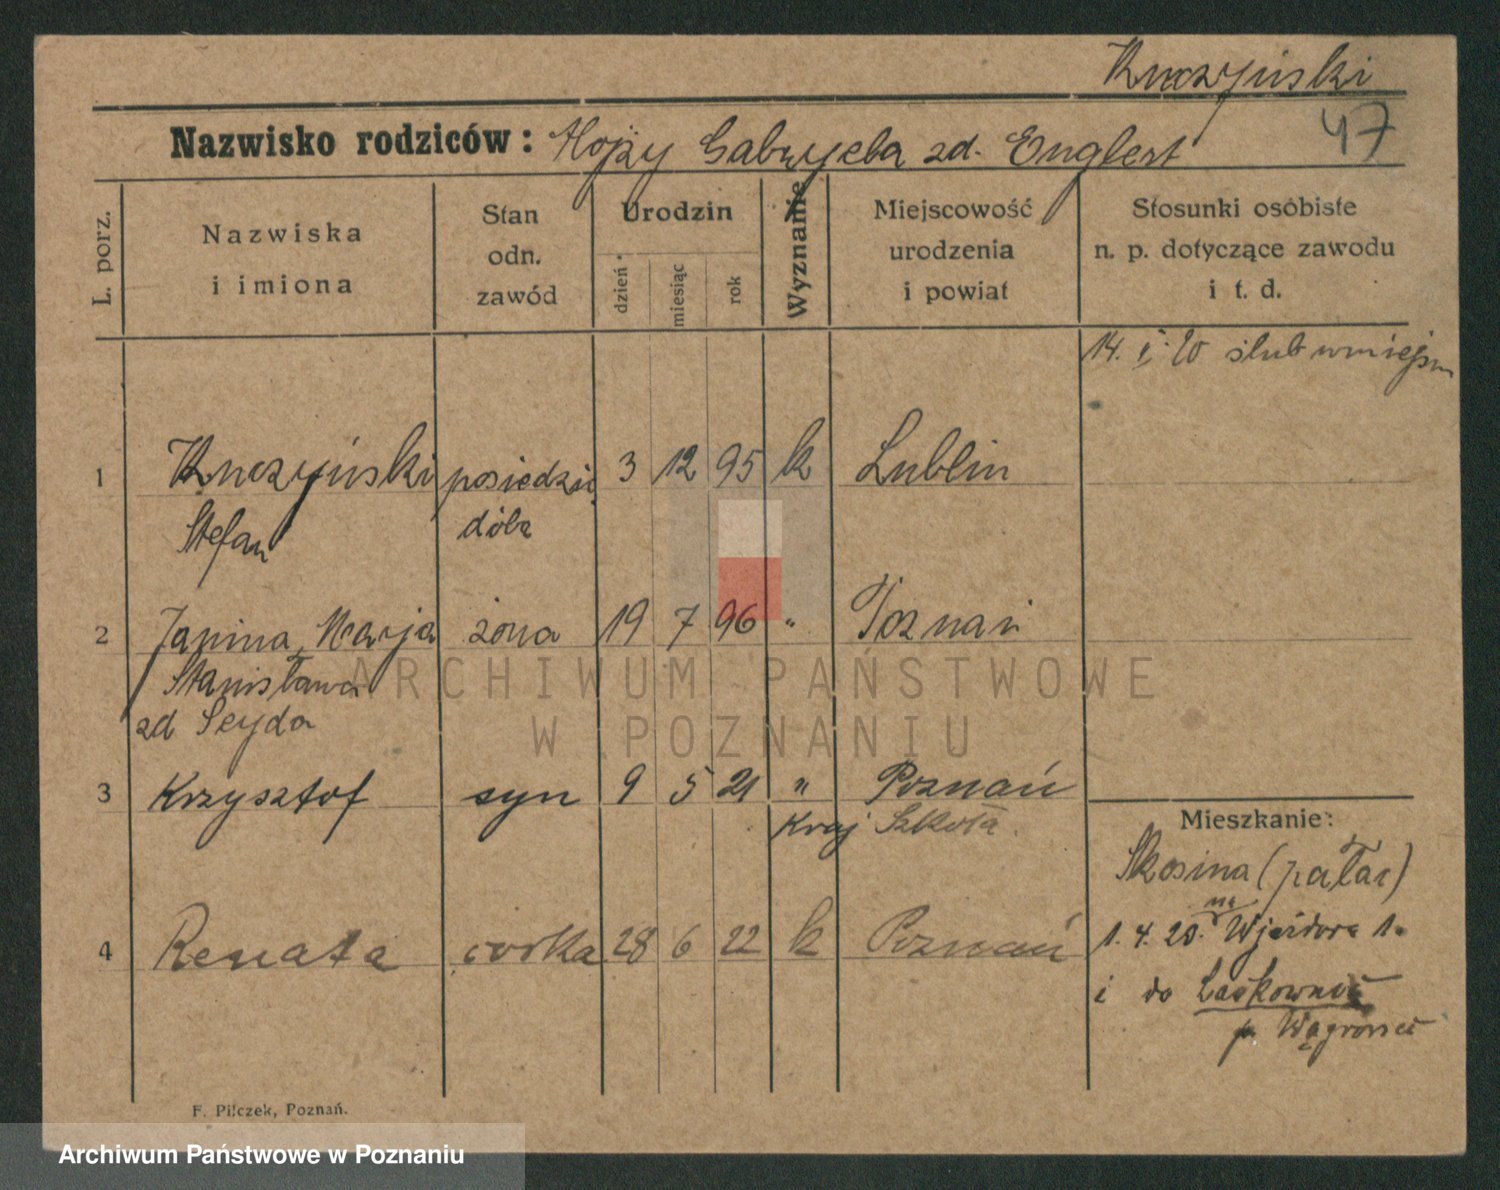 47
Nazwisko rodziców: Gabryela zd. Englert
L. porz.
Nazwiska
i imiona
Stan
odn.
zawód
Urodzin
dzień
miesiąc
rok
Wyznanie
Miejscowość
urodzenia
i powiat
Stosunki osobiste
n. p. dotyczące zawodu
i t. d.
14. 20 ślub w miejsu
1 3 12 95 k Lublin
Stefan dóbr
2 Janina, Marja żona 19 7 96 " Poznań
Stanisława
zd Seyda
3 Krzysztof syn 9 5 21 " Poznań
Kraj Szkoła.
Mieszkanie:
(pałac)
na
4 Renata córka 28 6 22 k Poznań
1. 4. 20.
i do
p.
F. Pilczek, Poznań.
ARCHIWUM PAŃSTWOWE
W POZNANIU
Archiwum Państwowe w Poznaniu